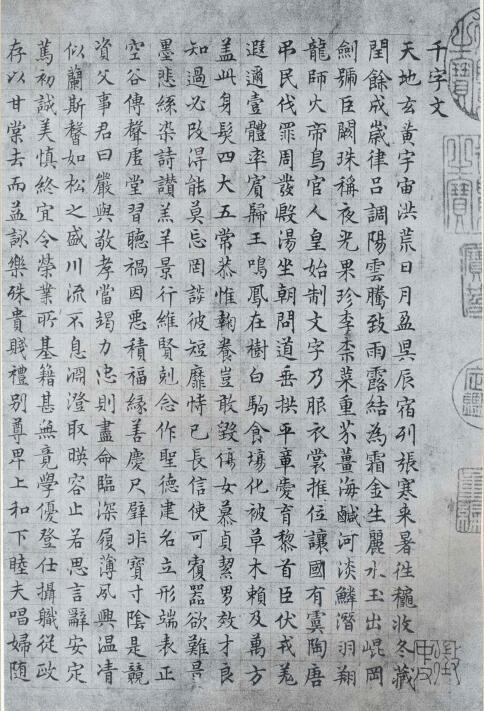 千字文
天地玄黃宇宙洪荒日月盈昃辰宿列張寒来暑往穐收冬藏
閏餘成歲律呂調陽雲騰致雨露結為霜金生麗水玉出崐岡
劍號臣闕珠稱夜光果珍李柰菜重芥薑海鹹河淡鱗潛羽翔
龍師火帝鳥官人皇始制文字乃服衣裳推位讓國有虞陶唐
弔民伐罪周發殷湯坐朝問道垂拱平章愛育黎首臣伏戎羌
遐邇壹體率賓歸王鳴鳳在樹白駒食場化被草木賴及萬方
盖此身髮四大五常恭惟鞠養豈敢毀傷女慕貞絜男效才良
知過必改得能莫忘罔談彼短靡恃己長信使可覆器欲難量
墨悲絲染詩讚羔羊景行維賢剋念作聖德建名立形端表正
空谷傳聲虛堂習聽禍因惡積福緣善慶尺璧非寶寸陰是競
資父事君曰嚴與敬孝當竭力忠則盡命臨深履薄夙興温凊
似蘭斯馨如松之盛川流不息淵澄取暎容止若思言辭安定
篤初誠美慎終宜令榮業所基籍甚無竟學優登仕攝職從政
存以甘棠去而益詠樂殊貴賤禮別尊卑上和下睦夫唱婦随